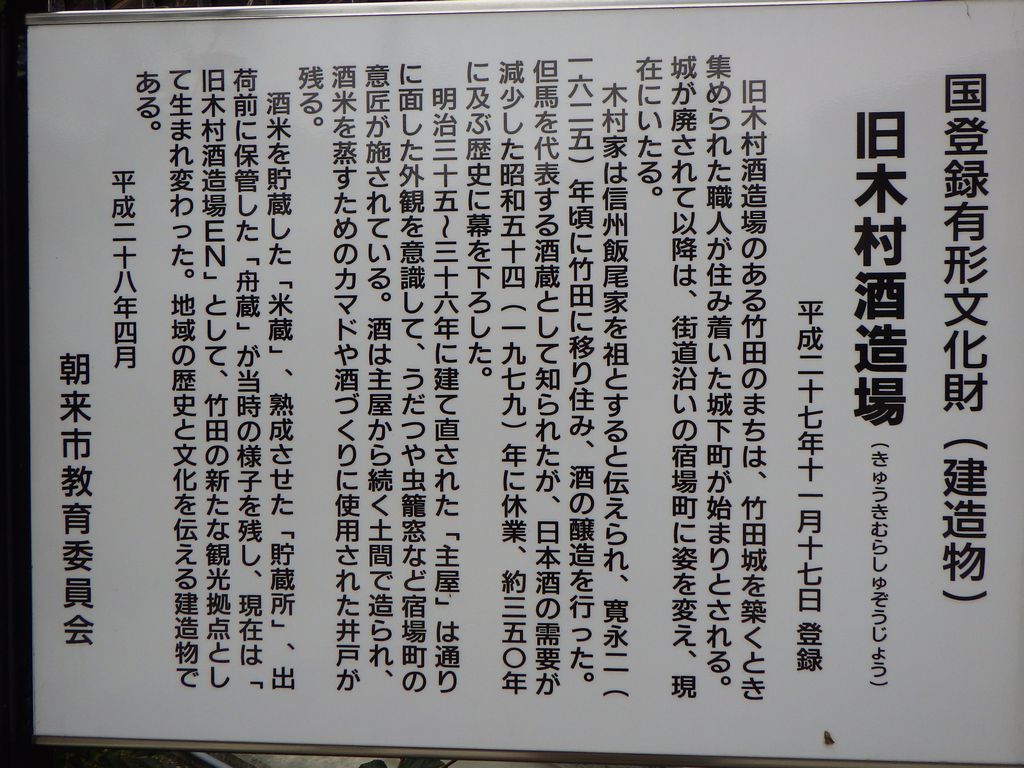 国登録有形文化財（建造物）
旧木村酒造場（きゅうきむらしゅぞうじょう）
平成二十七年十一月十七日 登録
旧木村酒造場のある竹田のまちは、竹田城を築くとき
集められた職人が住み着いた城下町が始まりとされる。
城が廃されて以降は、街道沿いの宿場町に姿を変え、現
在にいたる。
木村家は信州飯尾家を祖とすると伝えられ、寛永二（
一六二五）年頃に竹田に移り住み、酒の醸造を行った。
但馬を代表する酒蔵として知られたが、日本酒の需要が
減少した昭和五十四（一九七九）年に休業、約三五〇年
に及ぶ歴史に幕を下ろした。
明治三十五～三十六年に建て直された「主屋」は通り
に面した外観を意識して、うだつや虫籠窓など宿場町の
意匠が施されている。酒は主屋から続く土間で造られ、
酒米を蒸すためのカマドや酒づくりに使用された井戸が
残る。
酒米を貯蔵した「米蔵」、熟成させた「貯蔵所」、出
荷前に保管した「舟蔵」が当時の様子を残し、現在は「
旧木村酒造場ＥＮ」として、竹田の新たな観光拠点とし
て生まれ変わった。地域の歴史と文化を伝える建造物で
ある。
平成二十八年四月
朝来市教育委員会